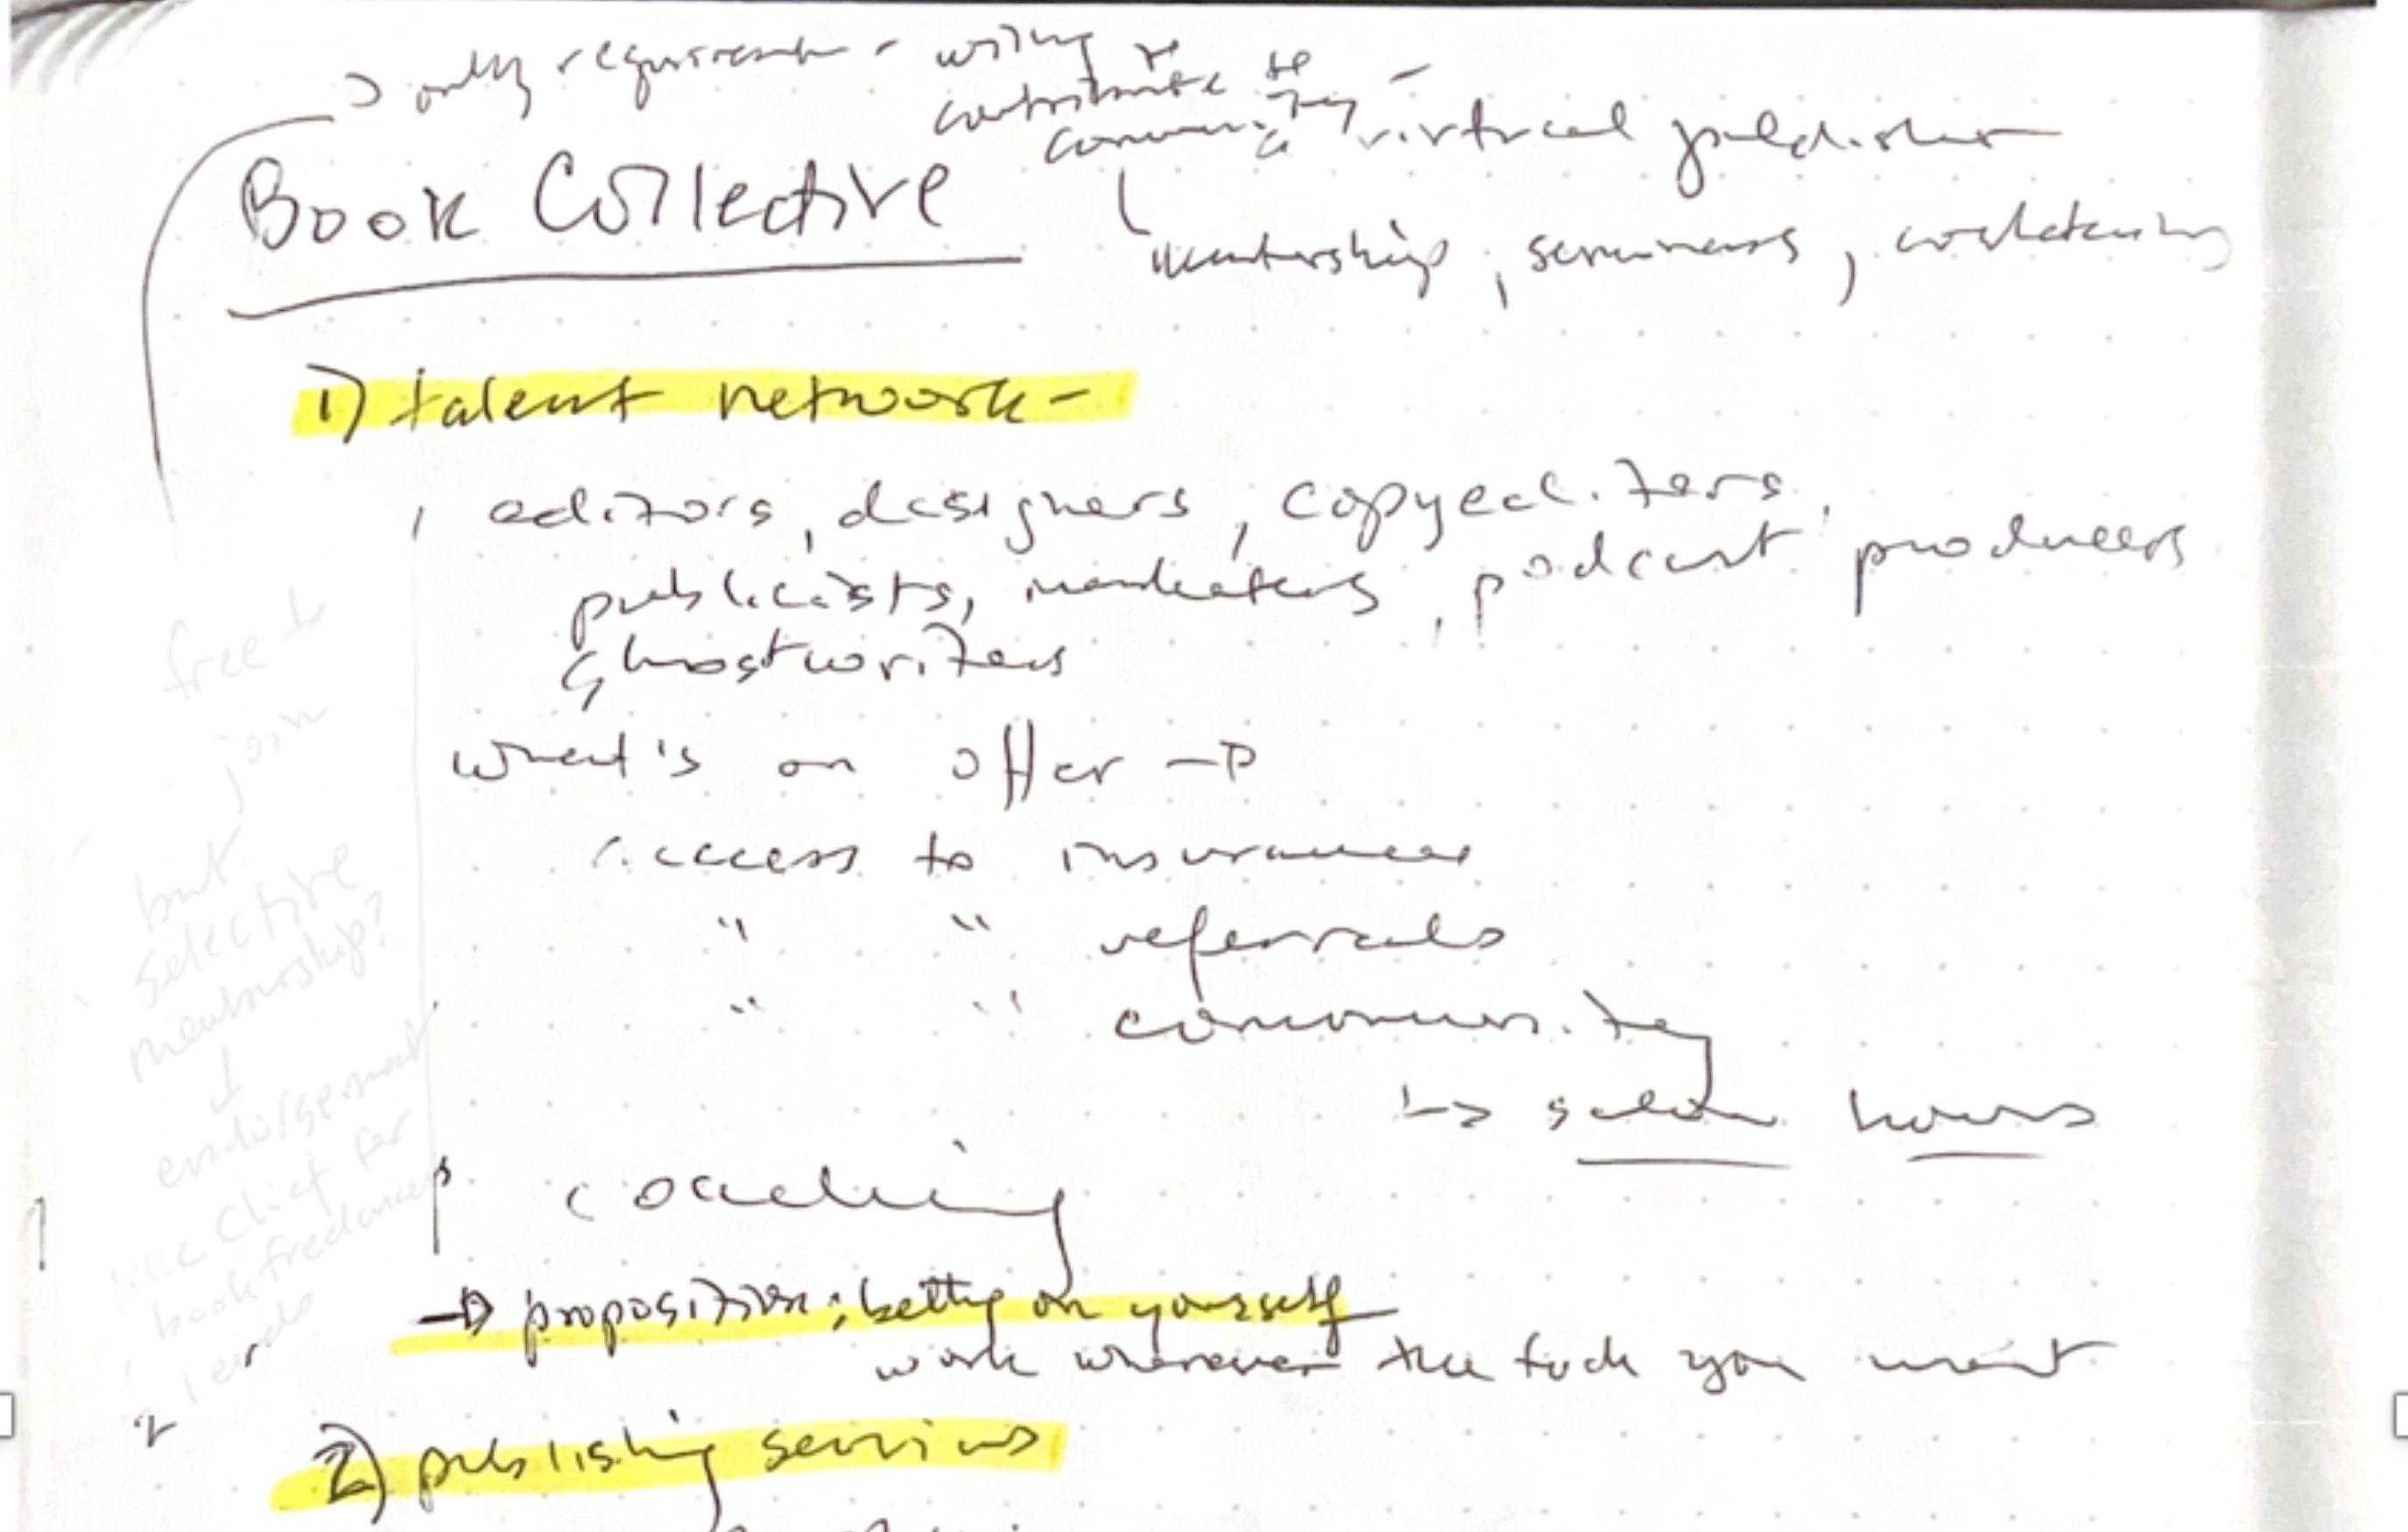 → only requirement - willing to
contribute to the
community
- a virtual publisher
Book Collective
mentorship, seminars,
1) talent network -
editors, designers, copyeditors,
publicists, marketers, podcast producers
ghostwriters
what's on offer →
access to insurance
" " referrals
" " community
↳ salon hours
coaching
→ proposition: betting on yourself
work wherever the fuck you want
2) publishing services
free to
join
but
selective
membership?
↓
endorsement
like for
book freelancer
leads